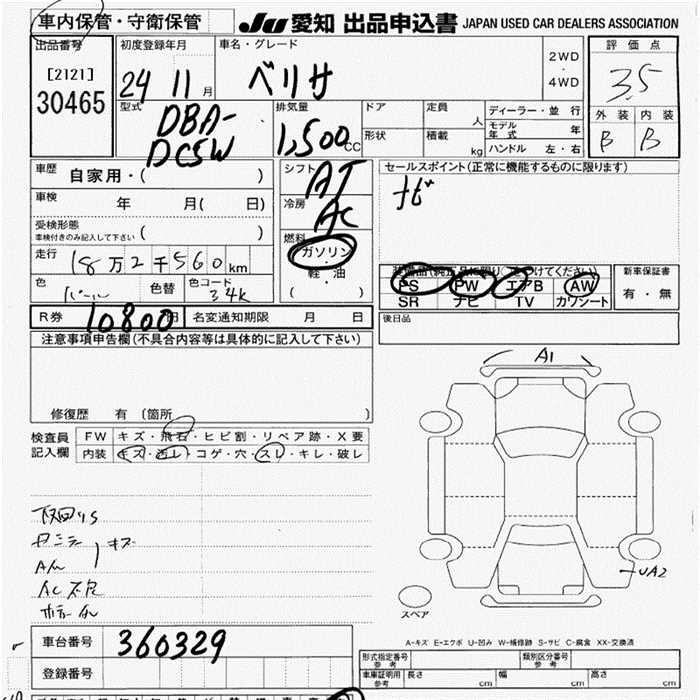 車内保管・守衛保管
JU 愛知 出品申込書 JAPAN USED CAR DEALERS ASSOCIATION
出品番号
[2121]
30465
初度登録年月
24 11 月
車名・グレード
ベリサ
2WD
・
4WD
評価点
3.5
外装 内装
B B
型式
DBA-
DC5W
排気量
1,500 CC
ドア
定員 人
形状
積載 kg
ディーラー・並行
モデル年式 年
ハンドル 左・右
車歴
自家用・( )
車検
年 月( 日)
受検形態
車検付きのみ記入して下さい ( )
走行
18万2千560km
色
パール
色替
色コード
34K
シフト
AT
冷房
AC
燃料
ガソリン
・
軽・油
( )
セールスポイント(正常に機能するものに限ります)
ナビ
装備品(純正品に限り○を付けてください)
PS PW エアB AW
SR ナビ TV カワシート
新車保証書
有・無
R券 10800円 名変通知期限 月 日
後日品
注意事項申告欄(不具合内容等は具体的に記入して下さい)
修復歴 有 (箇所 )
検査員
記入欄
FW キズ・飛石・ヒビ割・リペア跡・X要
内装 キズ・汚レ・コゲ・穴・スレ・キレ・破レ
キズ
AC不良
A1
UA2
スペア
A-キズ E-エクボ U-凹み W-補修跡 S-サビ C-腐食 XX-交換済
車台番号 360329
登録番号
形式指定番号
参考
類別区分番号
参考
車庫証明用
参考
長さ cm 幅 cm 高さ cm